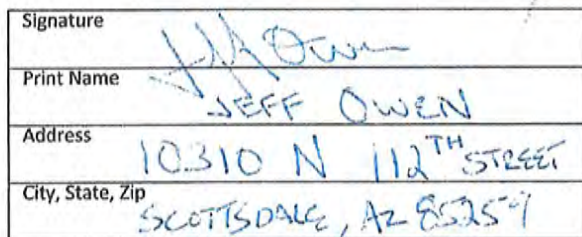 Signature
Jeff Owen
Print Name
JEFF OWEN
Address
10310 N 112TH STREET
City, State, Zip
SCOTTSDALE, AZ 85259